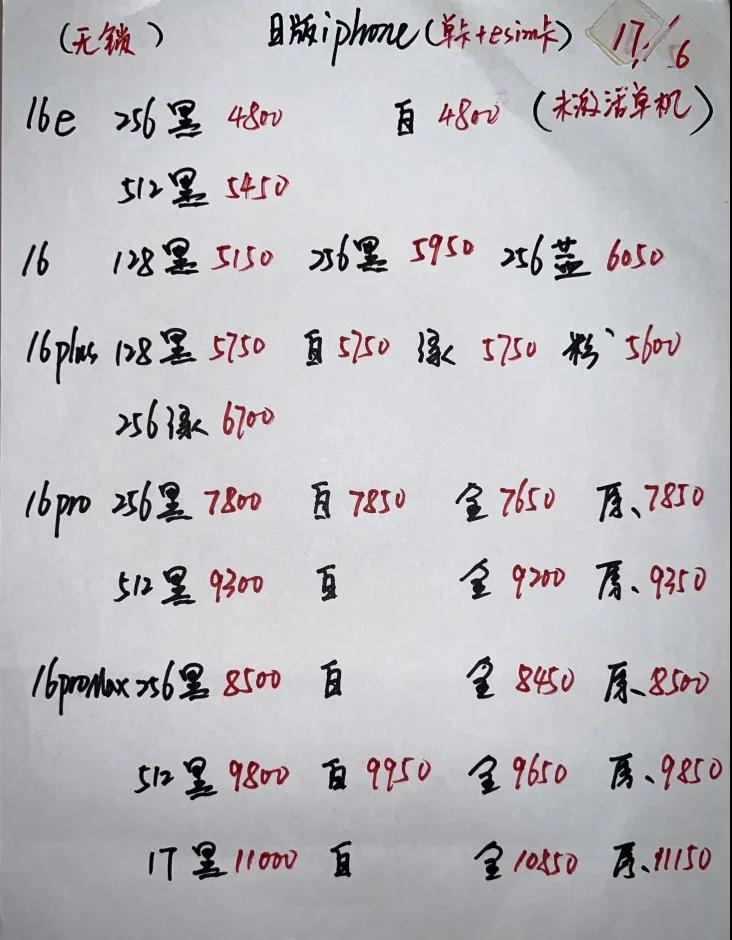 (无锁) 日版iphone(单卡+esim卡) 17/6
16e 256黑 4800 白 4800 (未激活单机)
512黑 5450
16 128黑 5150 256黑 5950 256蓝 6050
16plus 128黑 5750 白 5750 绿 5750 粉 5600
256绿 6700
16pro 256黑 7800 白 7850 金 7650 原、7850
512黑 9300 白 金 9200 原、9350
16proMax 256黑 8500 白 金 8450 原、8500
512黑 9800 白 9950 金 9650 原、9850
1T黑 11000 白 金 10850 原、11150